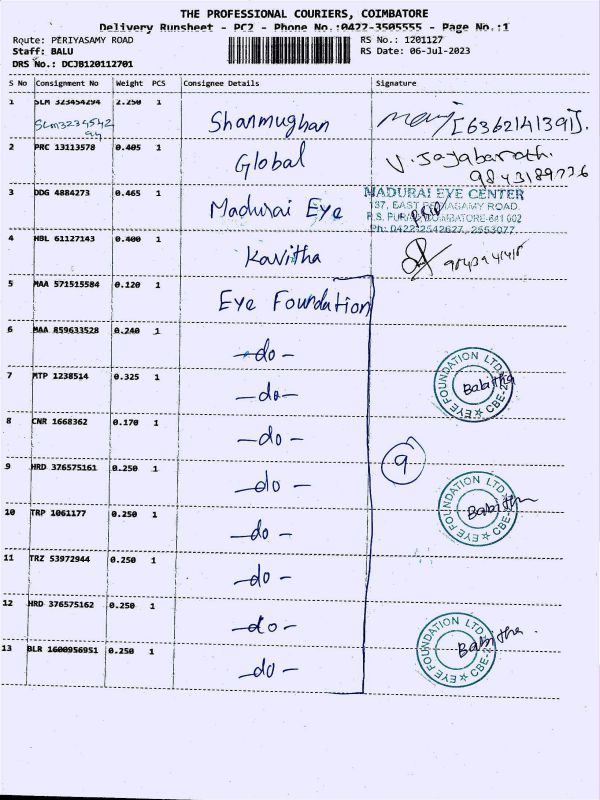 THE PROFESSIONAL COURIERS, COIMBATORE
Delivery Runsheet - PC2 - Phone No.:0422-3505555 - Page No.:1
Route: PERIYASAMY ROAD RS No.: 1201127
Staff: BALU RS Date: 06-Jul-2023
DRS No.: DCJB120112701
S No Consignment No Weight PCS Consignee Details Signature
1 SLM 323454294 2.250 1 Shanmughan [6362141391].
SLM3234542
94
2 PRC 13113578 0.405 1 Global V. Jayabarath.
9843189736
3 DDG 4884273 0.465 1 Madurai Eye MADURAI EYE CENTER
137, EAST PERIASAMY ROAD,
R.S. PURAM, COIMBATORE-641 002
Ph: 0422-2542627, 2553077
4 HBL 61127143 0.400 1 Kavitha
5 MAA 571515584 0.120 1 Eye Foundation
6 MAA 859633528 0.240 1 -do-
EYE FOUNDATION LTD. CBE-2 Babitha
7 MTP 1238514 0.325 1 -do-
8 CNR 1668362 0.170 1 -do-
9
9 HRD 376575161 0.250 1 -do-
EYE FOUNDATION LTD. CBE-2 Babitha
10 TRP 1061177 0.250 1 -do-
11 TRZ 53972944 0.250 1 -do-
12 HRD 376575162 0.250 1 -do-
EYE FOUNDATION LTD. CBE-2 Babitha
13 BLR 1600956951 0.250 1 -do-